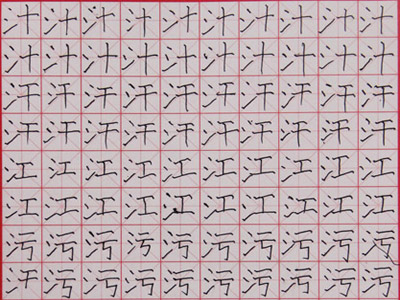 汁汁汁汁汁汁汁汁汁汁
汁汁汁汁汁汁汁汁汁汁
汗汗汗汗汗汗汗汗汗汗
汗汗汗汗汗汗汗汗汗汗
江江江江江江江江江江
江江江江江江江江江江
污污污污污污污污污污
汗污污污污污污污污污